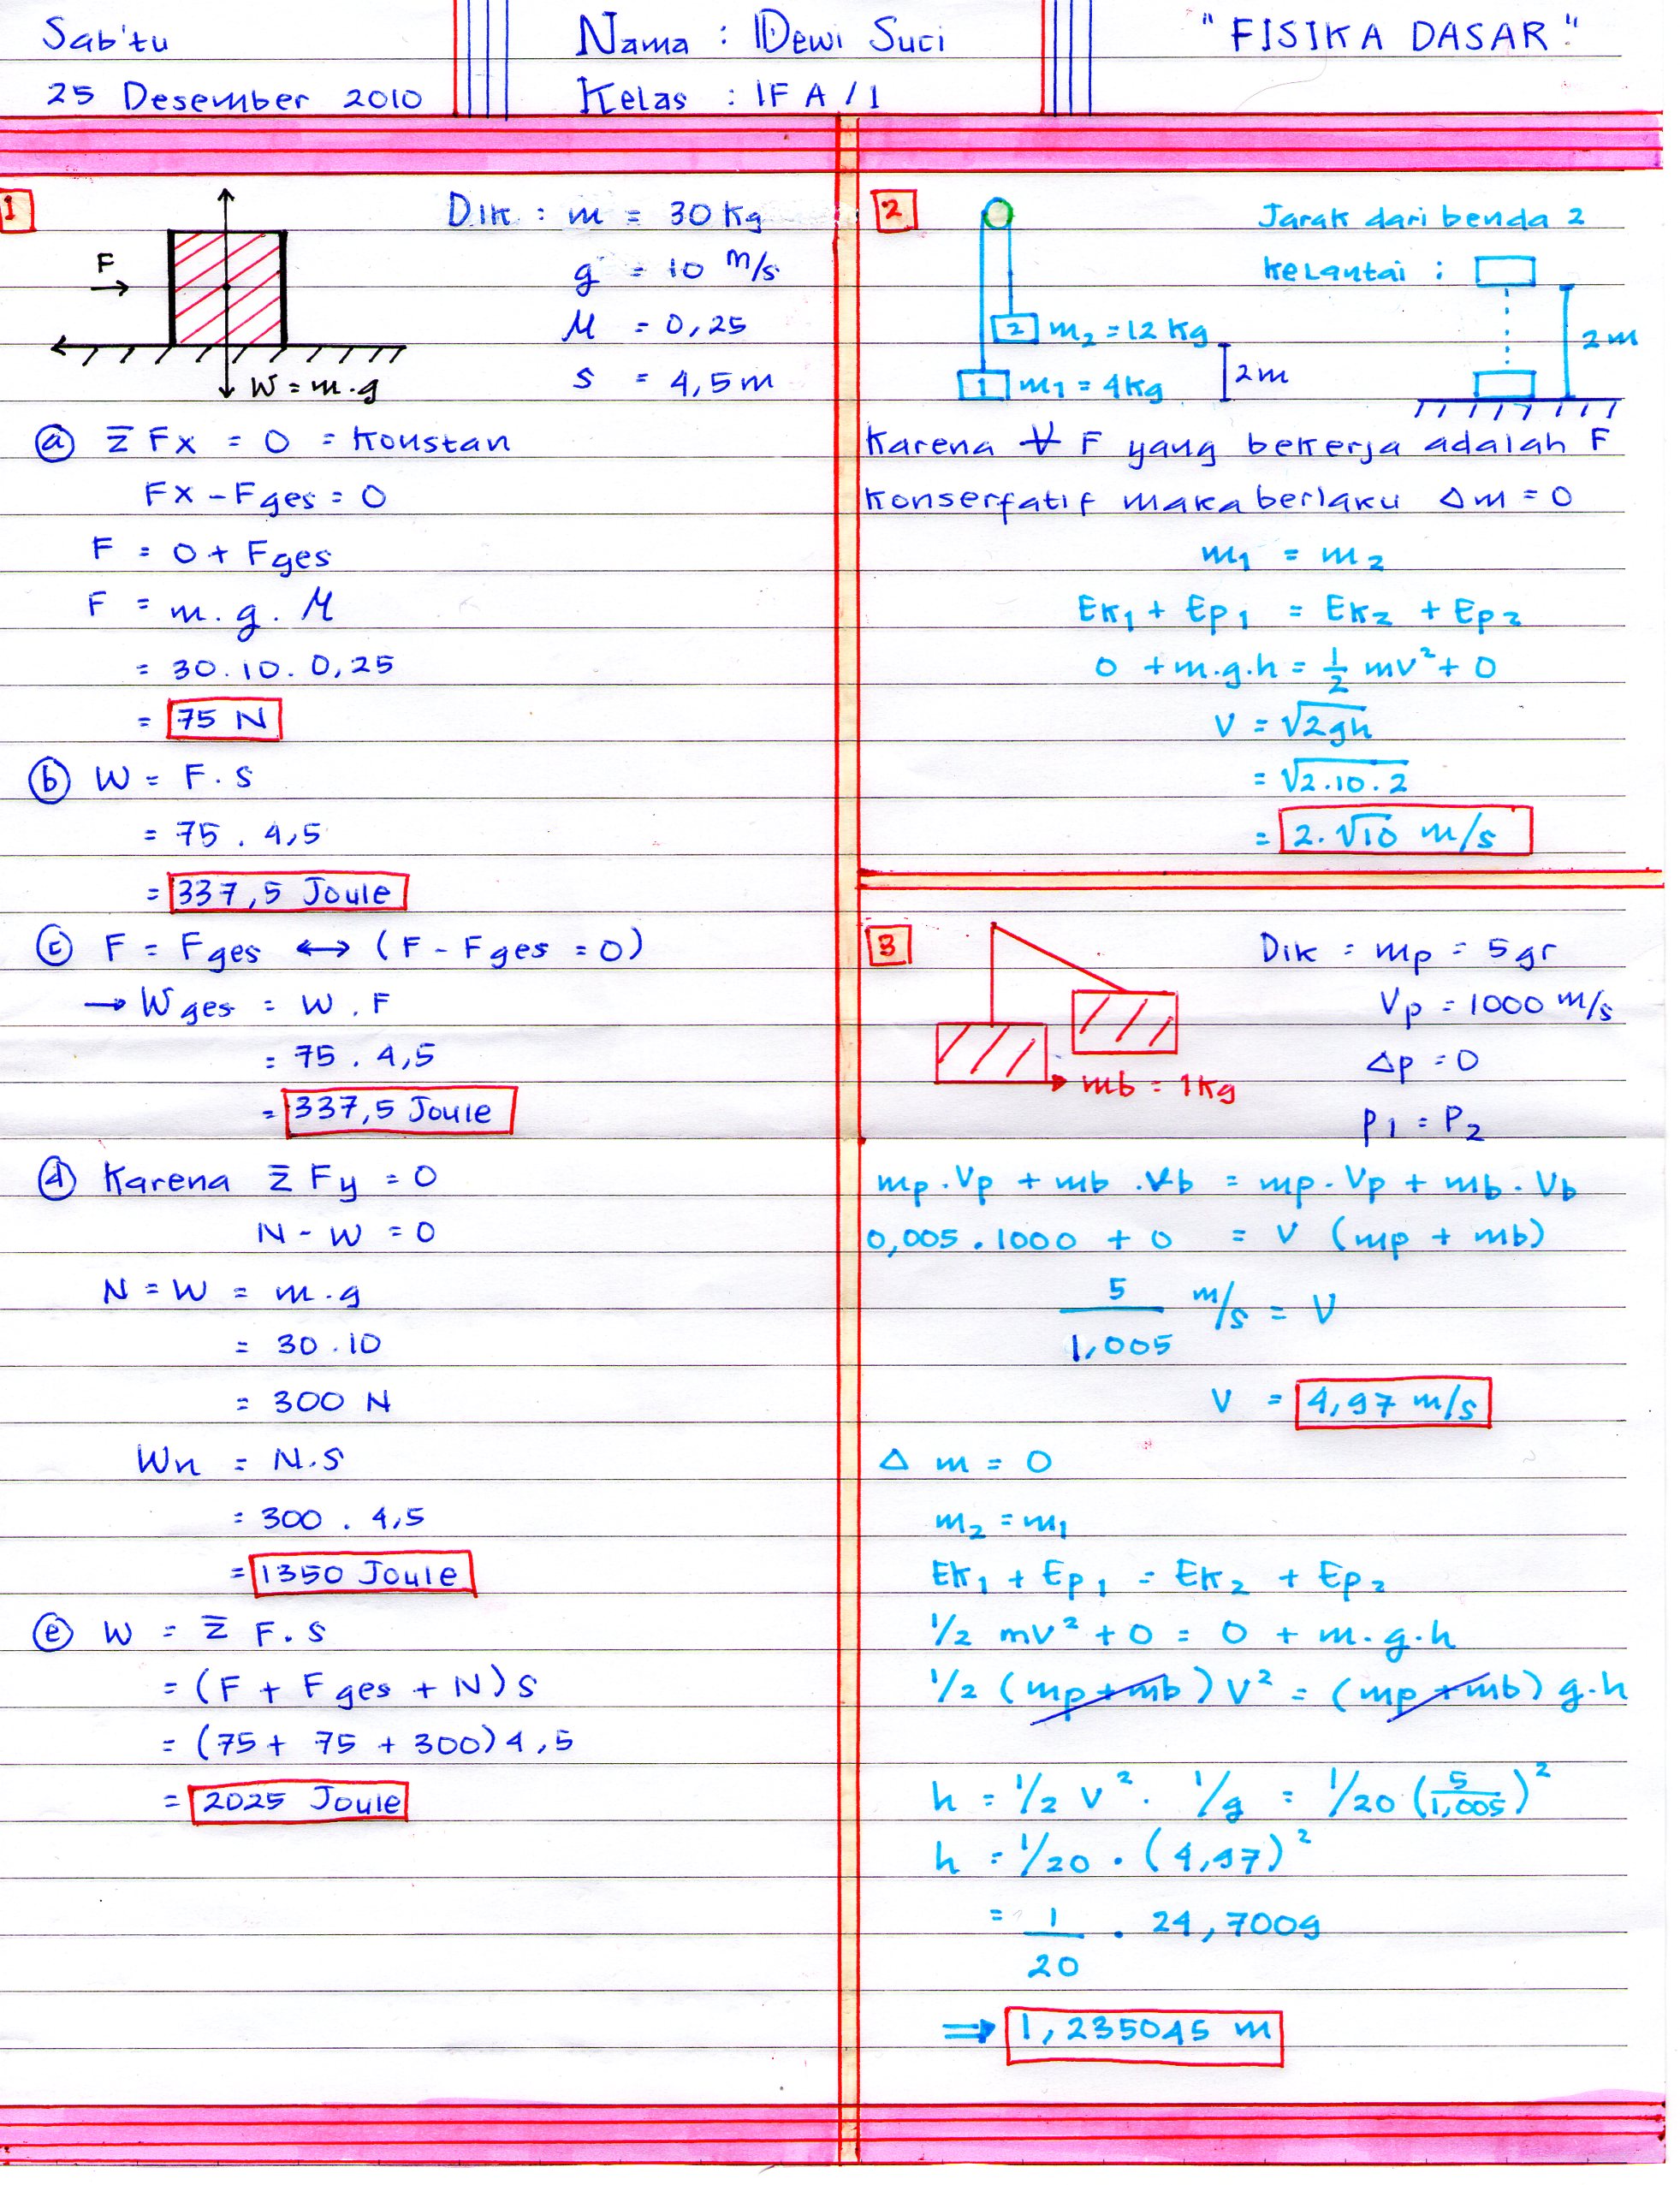 Sab'tu
25 Desember 2010
Nama : Dewi Suci
Kelas : IF A / 1
" FISIKA DASAR "
1
F
W = m.g
Dik : m = 30 Kg
g = 10 m/s
μ = 0,25
s = 4,5 m
(a) Σ Fx = 0 = Konstan
Fx - Fges = 0
F = 0 + Fges
F = m. g. μ
= 30. 10. 0,25
= 75 N
(b) W = F. s
= 75 . 4,5
= 337,5 Joule
(c) F = Fges ↔ (F - Fges = 0)
→ W ges = W . F
= 75 . 4,5
= 337,5 Joule
(d) Karena Σ Fy = 0
N - W = 0
N = W = m.g
= 30 .10
= 300 N
Wn = N.S
= 300 . 4,5
= 1350 Joule
(e) W = Σ F. s
= (F + F ges + N) s
= (75 + 75 + 300) 4,5
= 2025 Joule
2
2 m₂ = 12 Kg
1 m₁ = 4Kg
2m
Jarak dari benda 2
kelantai :
2 m
Karena ∀ F yang bekerja adalah F
Konserfatif maka berlaku Δm = 0
m₁ = m₂
Ek₁ + Ep₁ = Ek₂ + Ep₂
0 + m.g.h = 1/2 mv² + 0
V = √2gh
= √2.10.2
= 2.√10 m/s
3
mb = 1Kg
Dik : mp = 5 gr
Vp = 1000 m/s
Δp = 0
P1 = P2
mp. Vp + mb .Vb = mp. Vp + mb. Vb
0,005 . 1000 + 0 = V (mp + mb)
5/1,005 m/s = V
V = 4,97 m/s
Δ m = 0
m₂ = m₁
Ek₁ + Ep₁ = Ek₂ + Ep₂
1/2 mv² + 0 = 0 + m. g.h
1/2 (mp+mb) V² = (mp+mb) g.h
h = 1/2 v². 1/g = 1/20 (5/1,005)²
h = 1/20 . (4,97)²
= 1/20 . 24,7009
⇒ 1,235045 m